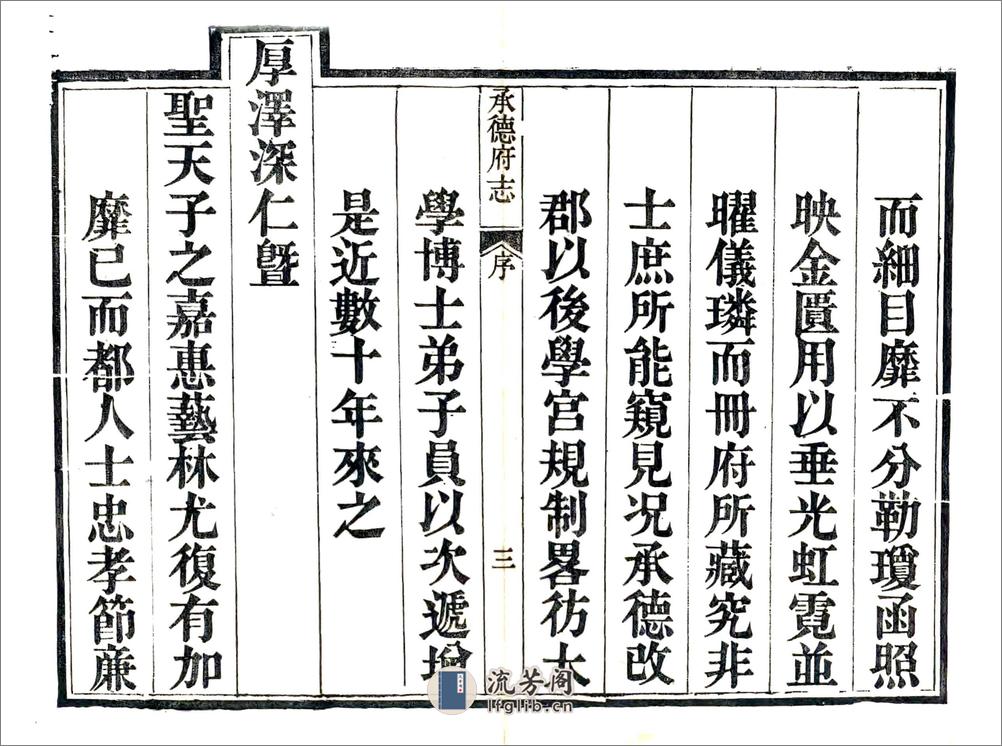 而細目靡不分勒瓊函照
映金匱用以垂光虹霓並
曜儀璘而冊府所藏究非
士庶所能窺見况承德改
郡以後學宮規制畧彷大
承德府志 序 三
學博士弟子員以次遞增
是近數十年來之
厚澤深仁曁
聖天子之嘉惠藝林尤復有加
靡已而都人士忠孝節廉
流芳阁
lfglib.cn